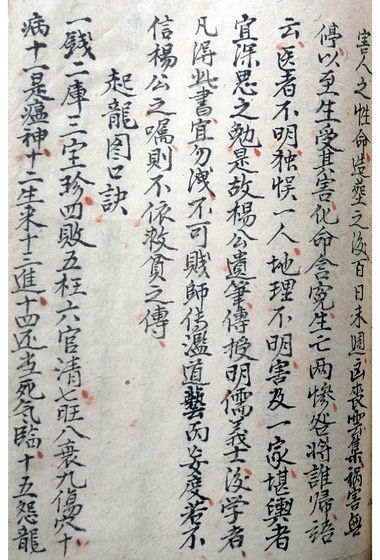 害人之性命造塋之後百日未週凶喪雲集禍害無
停以至生受其害化命含冤生亡两慘咎將誰歸語
云医者不明独悞一人地理不明害及一家堪輿者
宜深思之勉是故楊公遺筆傳授明儒義士後学者
凡得此書宜勿洩不可賤師傳濫道藝丙妄度若不
信楊公之嘱則不依救貧之傳
起龍图口訣
一錢二庫三宝珍四敗五枉六官清七旺八衰九傷穴十
病十一是瘟神十二生来十三進十四当死气臨十五怨龍